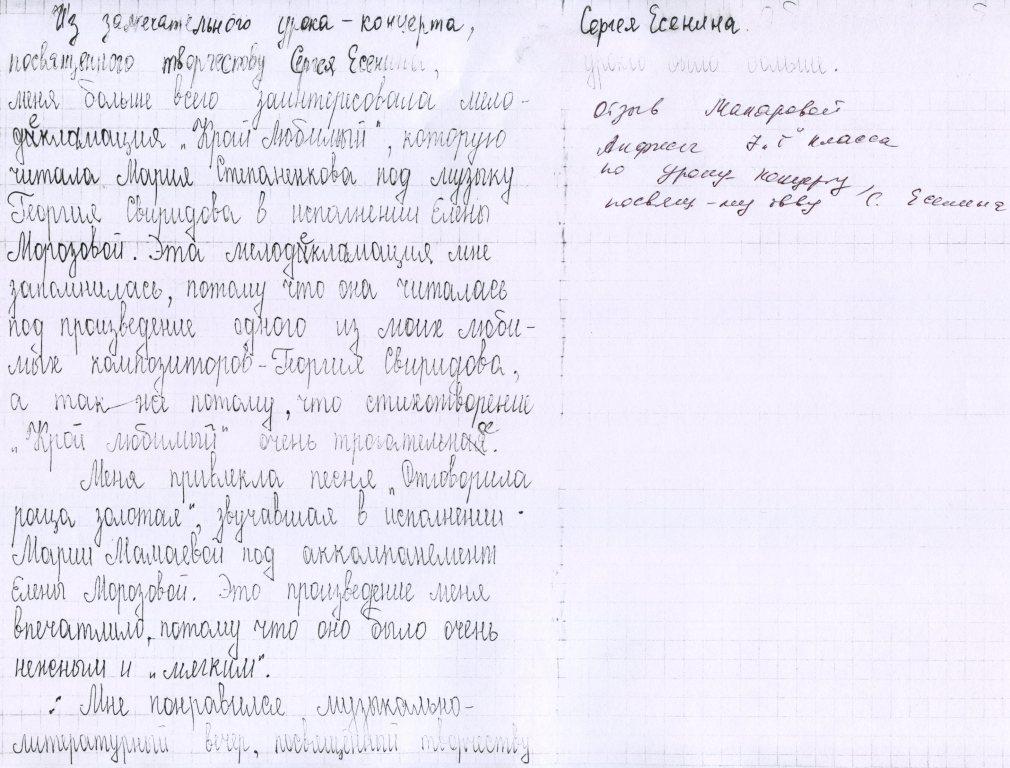 Из замечательного урока-концерта,
посвященного творчеству Сергея Есенина,
меня больше всего заинтересовала мело-
декламация „Край Любимый", которую
читала Мария Степаненкова под музыку
Георгия Свиридова в исполнении Елены
Морозовой. Эта мелодекламация мне
запомнилась, потому что она читалась
под произведение одного из моих люби-
мых композиторов - Георгия Свиридова,
а так же потому, что стихотворение
„Край любимый" очень трогательное.
Меня привлекла песня „Отговорила
роща золотая", звучавшая в исполнении
Марии Мамаевой под аккомпанемент
Елены Морозовой. Это произведение меня
впечатлило, потому что оно было очень
нежным и „мягким".
Мне понравился музыкально-
литературный вечер, посвящённый творчеству
Сергея Есенина.
было больше.
Отзыв Макаровой
7 „г" класса
по уроку концерту,
посвящ-му тв-ву С. Есенина